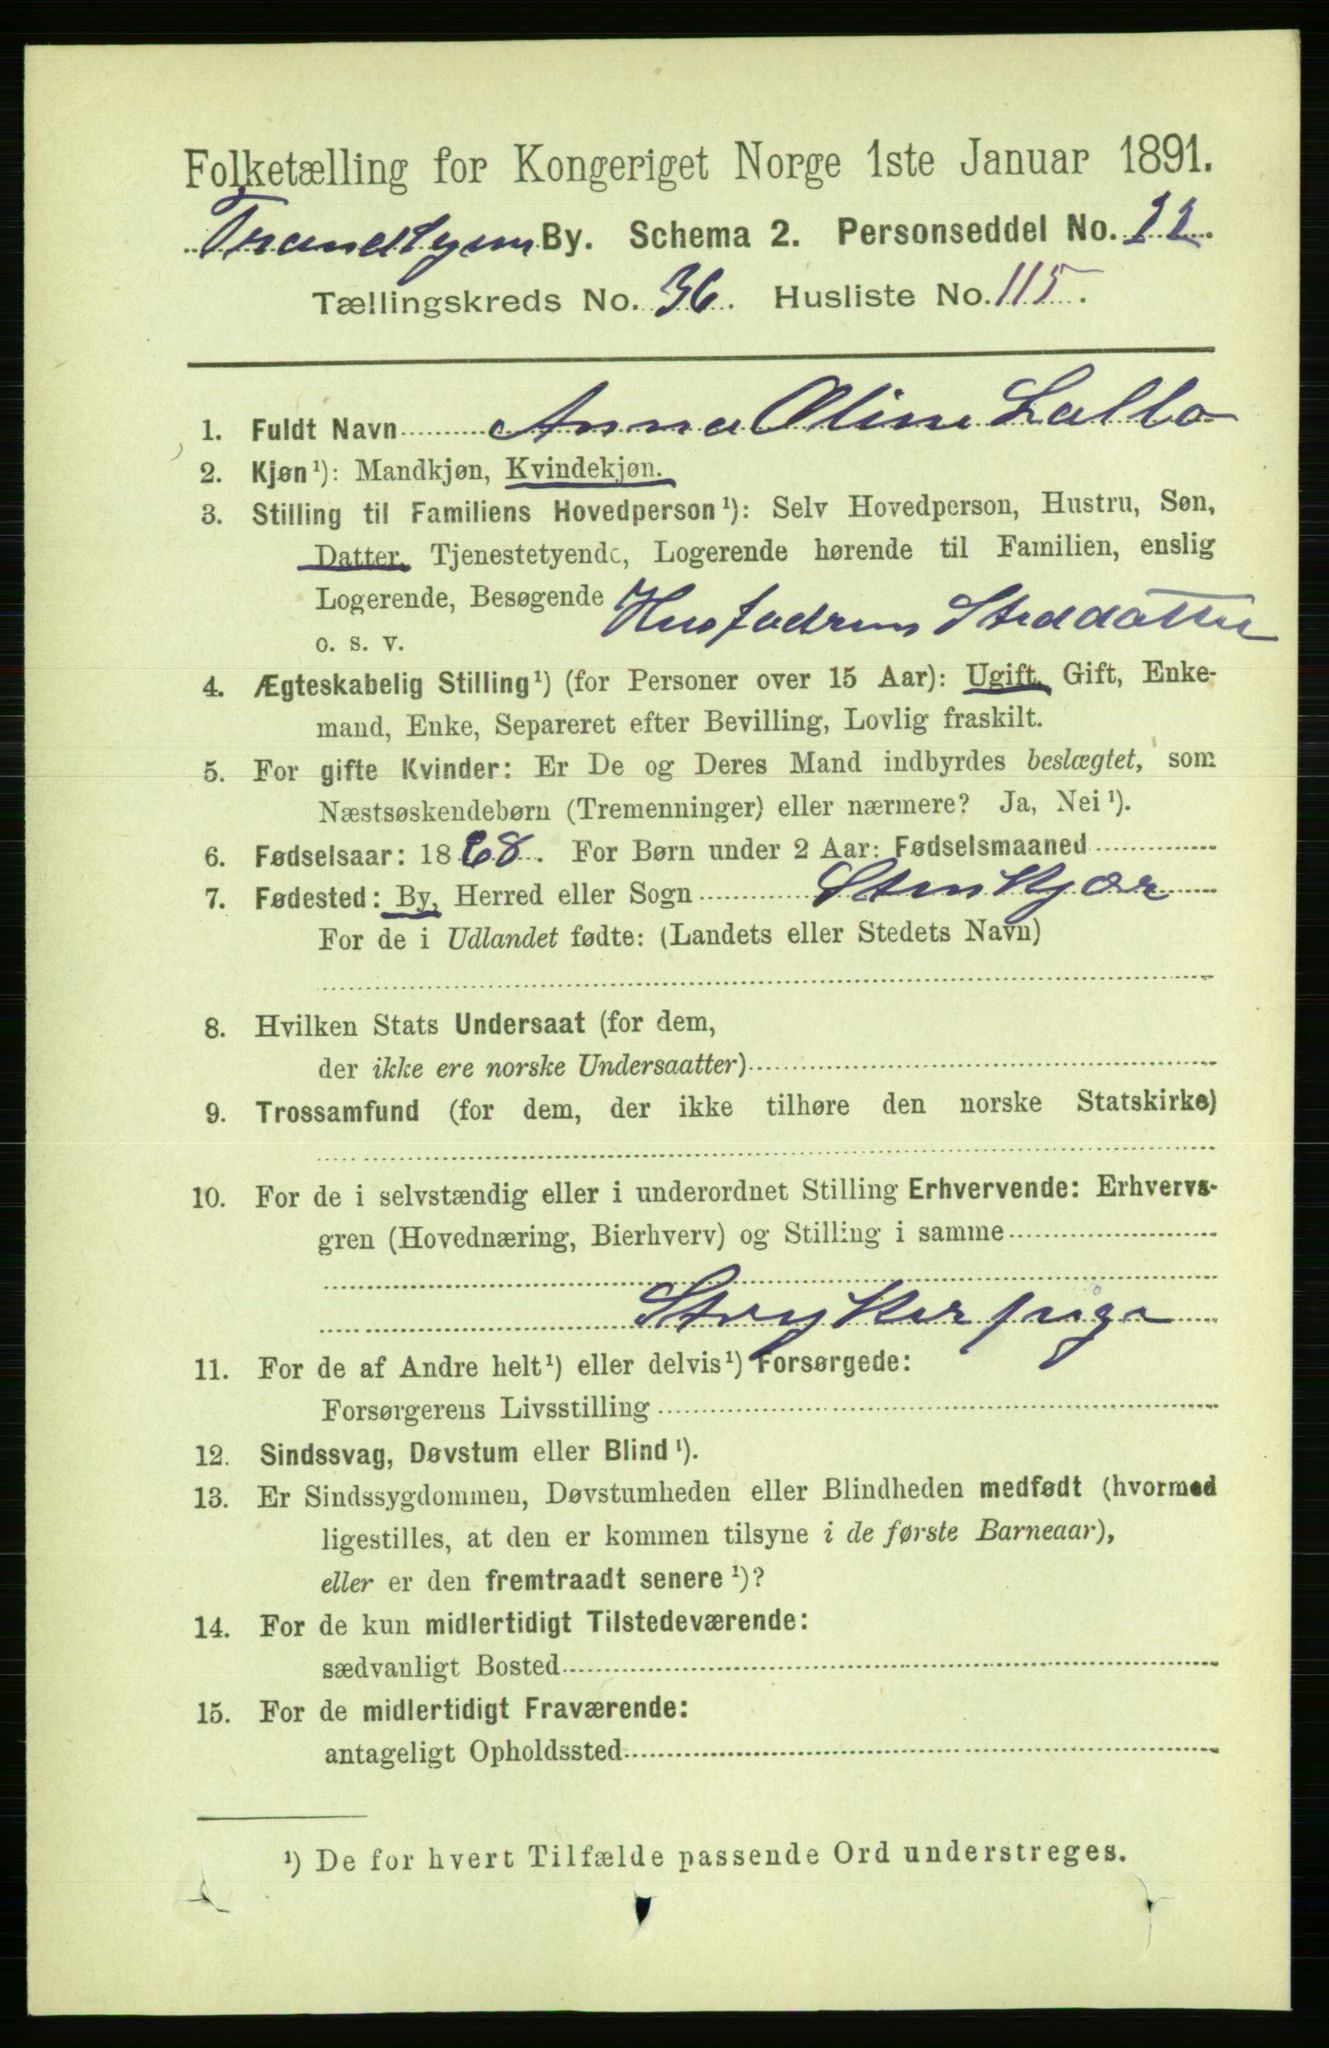 Folketælling for Kongeriget Norge 1ste Januar 1891.
Trondhjem By. Schema 2. Personseddel No. 22.
Tællingskreds No. 36. Husliste No. 115.
1. Fuldt Navn Anna Oline Lallo
2. Kjøn¹): Mandkjøn, Kvindekjøn.
3. Stilling til Familiens Hovedperson¹): Selv Hovedperson, Hustru, Søn,
Datter, Tjenestetyende, Logerende hørende til Familien, enslig
Logerende, Besøgende Husfadrens Steddatter
o. s. v.
4. Ægteskabelig Stilling¹) (for Personer over 15 Aar): Ugift, Gift, Enke-
mand, Enke, Separeret efter Bevilling, Lovlig fraskilt.
5. For gifte Kvinder: Er De og Deres Mand indbyrdes beslægtet, som
Næstsøskendebørn (Tremenninger) eller nærmere? Ja, Nei¹).
6. Fødselsaar: 1868. For Børn under 2 Aar: Fødselsmaaned
7. Fødested: By, Herred eller Sogn Stenkjær
For de i Udlandet fødte: (Landets eller Stedets Navn)
8. Hvilken Stats Undersaat (for dem,
der ikke ere norske Undersaatter)
9. Trossamfund (for dem, der ikke tilhøre den norske Statskirke)
10. For de i selvstændig eller i underordnet Stilling Erhvervende: Erhvervs-
gren (Hovednæring, Bierhverv) og Stilling i samme
Strykerpige
11. For de af Andre helt¹) eller delvis¹) Forsørgede:
Forsørgerens Livsstilling
12. Sindssvag, Døvstum eller Blind¹).
13. Er Sindssygdommen, Døvstumheden eller Blindheden medfødt (hvormed
ligestilles, at den er kommen tilsyne i de første Barneaar),
eller er den fremtraadt senere¹)?
14. For de kun midlertidigt Tilstedeværende:
sædvanligt Bosted
15. For de midlertidigt Fraværende:
antageligt Opholdssted
¹) De for hvert Tilfælde passende Ord understreges.